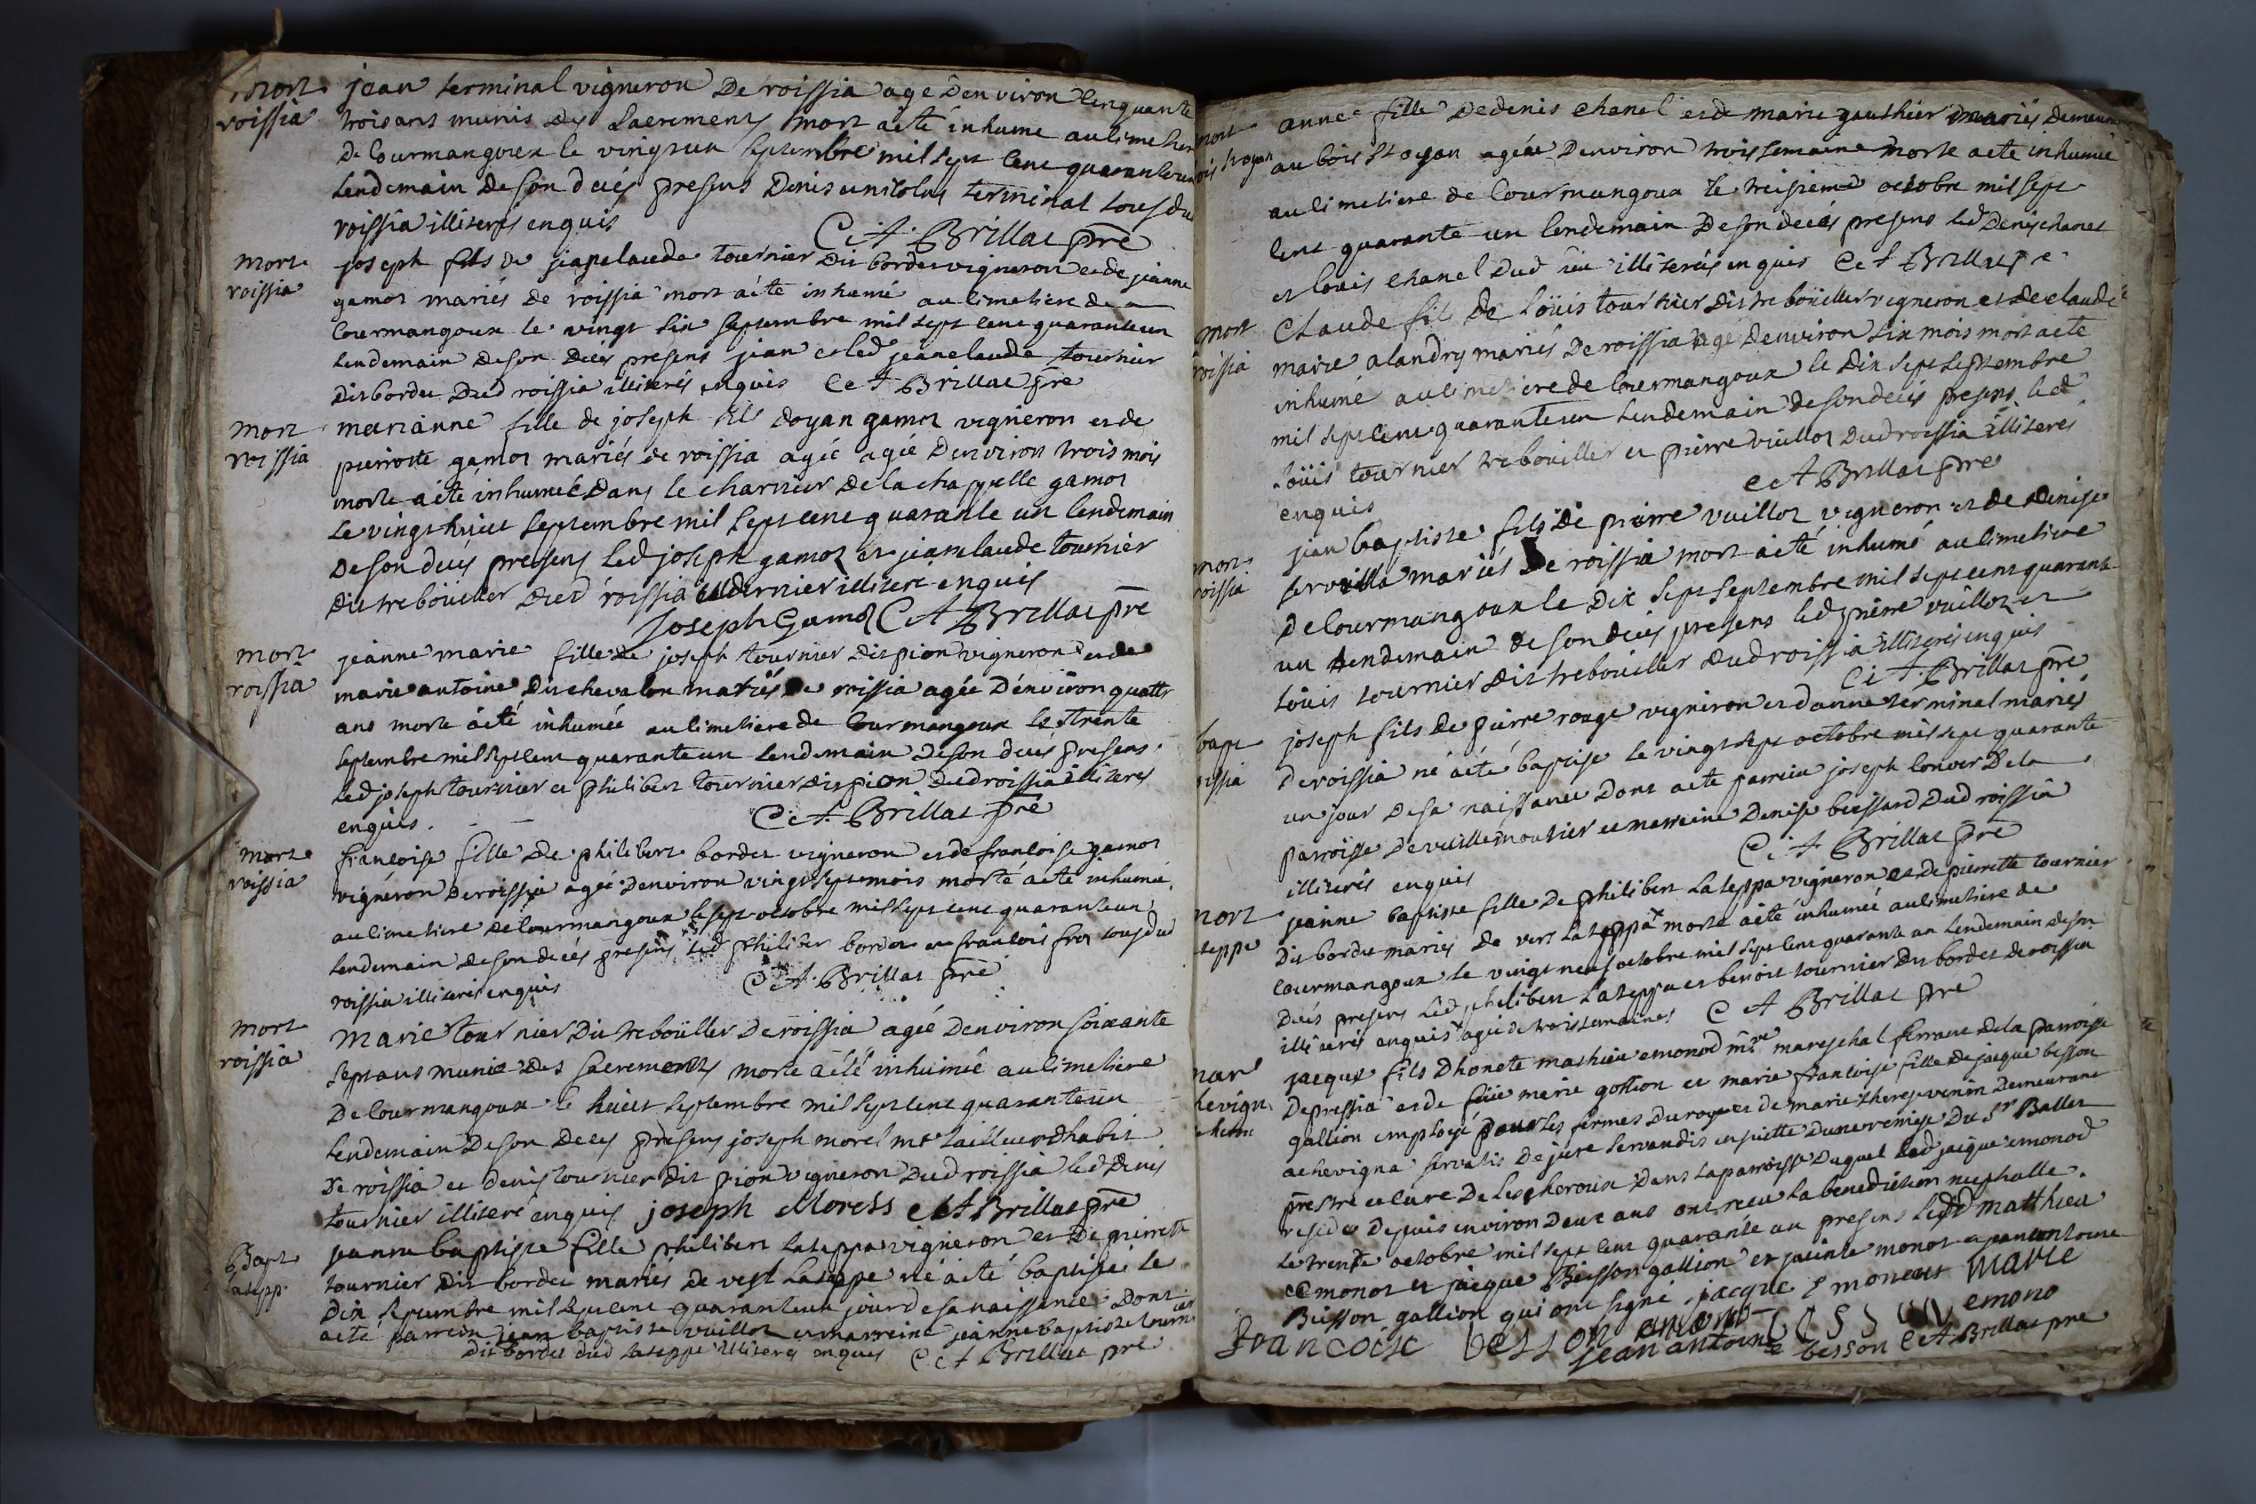 mort jean terminal vigneron de roissia age denviron cinquante
roissia trois ans munis des sacrements mort a eté inhumé au cimetiere
de courmangoux le vingt un septembre mil sept cent quarante un
lendemain de son deces presens denis et nicolas terminal tous du
roissia illiterés enquis C A Brillat pre
mort joseph fils de jeanclaude tournier dit bordet vigneron et de jeanne
roissia gamot mariés de roissia mort a eté inhumé au cimetiere de
courmangoux le vingt six septembre mil sept cent quarante un
lendemain de son deces presens jean et led jeanclaude tournier
dit bordet dud roissia illiterés enquis C A Brillat pre
mort marianne fille de joseph fils doyan gamot vigneron et de
roissia pierrette gamot mariés de roissia agée agée denviron trois mois
morte a eté inhumée dans le charnier de la chappelle gamot
le vingt huict septembre mil sept cent quarante un lendemain
de son deces presens led joseph gamot et jeanclaude tournier
dit treboüiller dud roissia le dernier illiteré enquis
joseph Gamot C A Brillat pre
mort jeanne marie fille de joseph tournier dit pion vigneron et de
roissia marie antoine dit chevalon mariés de roissia agée denviron quattr
ans morte a eté inhumée au cimetiere de courmangoux le trente
septembre mil sept cent quarante un lendemain de son deces presens
led joseph tournier et philibert tournier dit pion dud roissia illiteres
enquis. C A Brillat pre
mort francoise fille de philibert bordet vigneron et de francoise gamot
roissia vigneron de roissia agée denviron vingt sept mois morte a eté inhumé
au cimetiere de courmangoux le sept octobre mil sept cent quarante un
lendemain de son deces presens led philibert bordet et francois tous dud
roissia illiteres enquis C A Brillat pre
mort Marie tournier dit treboüller de roissia agée denviron soixante
roissia sept ans munie des sacrements morte a eté inhumée au cimetiere
de courmangoux le huict septembre mil sept cent quarante un
lendemain de son deces presens joseph morel mre tailleur dhabit
de roissia et denis tournier dit pion vigneron dud roissia led denis
tournier illiteré enquis joseph Morel C A Brillat pre
Bapt jeanne baptiste fille philibert lateppa vigneron et de pierrette
lateppe tournier dit bordet mariés de vert lateppe né a eté baptisée le
dix septembre mil sept cent quarante un jour de sa naissance dont
acte parrein jean baptiste vuillot et marreine jeanne baptiste tournier
dit bordet dud lateppe illiteres enquis C A Brillat pre
mort anne fille de denis chanel et de marie gauthier mariés demeurant
bois st oyan au bois st oyan agée denviron trois semaine morte a eté inhumée
au cimetiere de courmangoux le treisieme octobre mil sept
cent quarante un lendemain de son deces presens led denis chanel
et louis chanel dud lieu illiterés enquis C A Brillat pre
mort claude fils de loüis tournier dit treboüller vigneron et de claude
roissia marie alandry mariés de roissia agé denviron six mois mort a eté
inhumé au cimetiere de courmangoux le dix sept septembre
mil sept cent quarante un lendemain de son deces presens led
loüis tournier treboüiller et pierre vuillot dud roissia illiteres
enquis C A Brillat pre
mort jean baptiste fils de pierre vuillot vigneron et de denise
roissia mariés de roissia mort a eté inhumé au cimetiere
de courmangoux le dix sept septembre mil sept cent quarante
un lendemain de son deces presens led pierre vuillot et
loüis tournier dit treboüiller dud roissia illiterés enquis
C A Brillat pre
bapt joseph fils de pierre rouge vigneron et danne terminal mariés
roissia de roissia né a eté baptisé le vingt sept octobre mil sept quarante
un jour de sa naissance dont acte parrein joseph de la
parroisse de villemoutier et marreine denise dud roissia
illiterés enquis C A Brillat pre
mort jeanne baptiste fille de philibert lateppa vigneron et de pierrette tournier
lateppe dit bordet mariés de vert lateppa morte a eté inhumée au cimetiere de
courmangoux le vingt neuf octobre mil sept cent quarante un lendemain de son
deces presens led philibert lateppa et benoit tournier dit bordet de roissia
illiterés enquis agée de trois semaines C A Brillat pre
mar jacque fils dhonete mathieu emonod mre mareschal ferrant de la parroisse
chevign de pressia et de feüe merie gottion et marie francoise fille de jacque besson
gallion employé pour les fermes du roy et de marie therese venin demeurant
a chevigna servatis de jure servandis ensuitte dune remise du sr Ballet
prestre et curé de lescheroux dans la parroisse duquel led jacque emonod
reside depuis environ deux ans ont recu la benediction nuptialle
le trente octobre mil sept cent quarante un presens led matthieu
emonot et jacque Buisson gallion et jacinte monot et jean antoine
Buisson gallion qui ont signé. jacque Emonent marie
francoise besson emono
jean antoine besson C A Brillat pre